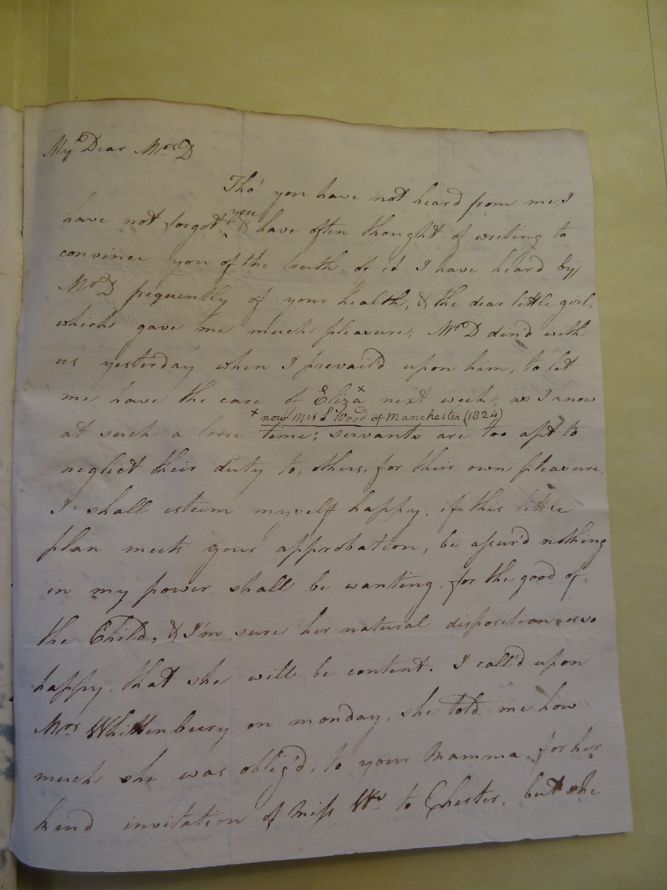 My Dear Mrs D
Tho' you have not heard from me, I
have not forgot you & have often thought of writing to
convince you of the truth of it, I have heard by
Mr D frequently of your health, & the dear little girl,
which gave me much pleasure, Mr D dind with
us yesterday when I prevail'd upon him, to let
me have the care of Eliza x next week, as I know
x now Mrs S Wood of Manchester (1824)
at such a loose time, servants are too apt to
neglect their duty to, others, for their own pleasure,
I shall esteem myself happy, if this little
plan meets your approbation, be assur'd nothing
in my power shall be wanting, for the good of,
the Child, & I'm sure her natural disposition is so
happy, that she will be content. I call'd upon
Mrs Whittenbury on monday, she told me how
much she was oblig'd, to your Mamma for her
kind invitation of Miss Wr to Chester, but she